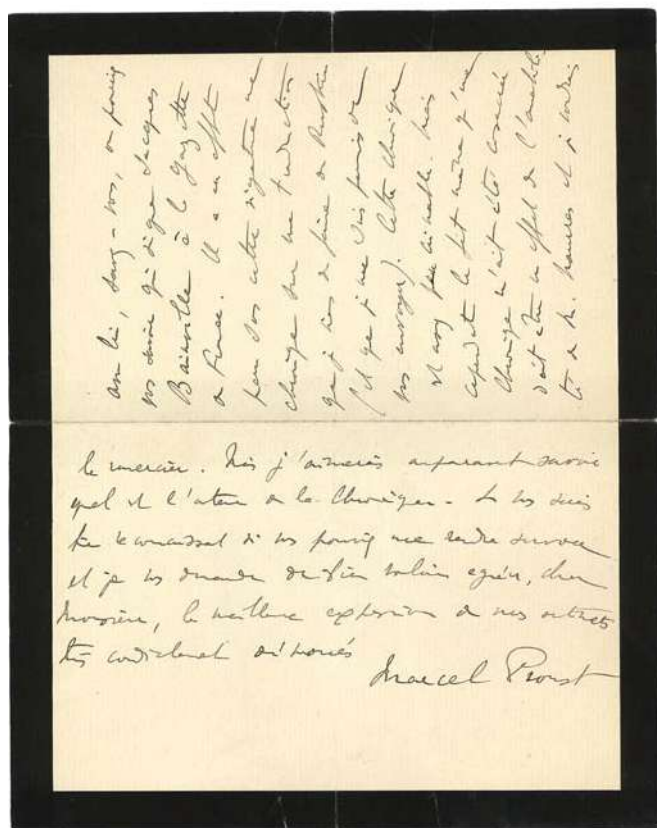 savez-vous, ou pouvez
vous savoir qui Jacques
Bainville à la Gazette
de France. Il a en effet
paru dans cette une
chronique sur une traduction
que je viens de faire de Ruskin
(et que je me suis permis de
vous envoyer). Cette chronique
est assez peu aimable. Mais
cependant le fait même qu'une
chronique m'ait été consacrée
doit être un effet de l'amabili
té de M. Maurras et je voudrais
le remercier. Mais j'aimerais auparavant savoir
quel est l'auteur de la Chronique. Je vous serais
reconnaissant si vous pouviez me rendre service
et je vous demande de bien vouloir agréer, cher
Monsieur, la meilleure expression de mes sentiments
très cordialement dévoués
Marcel Proust